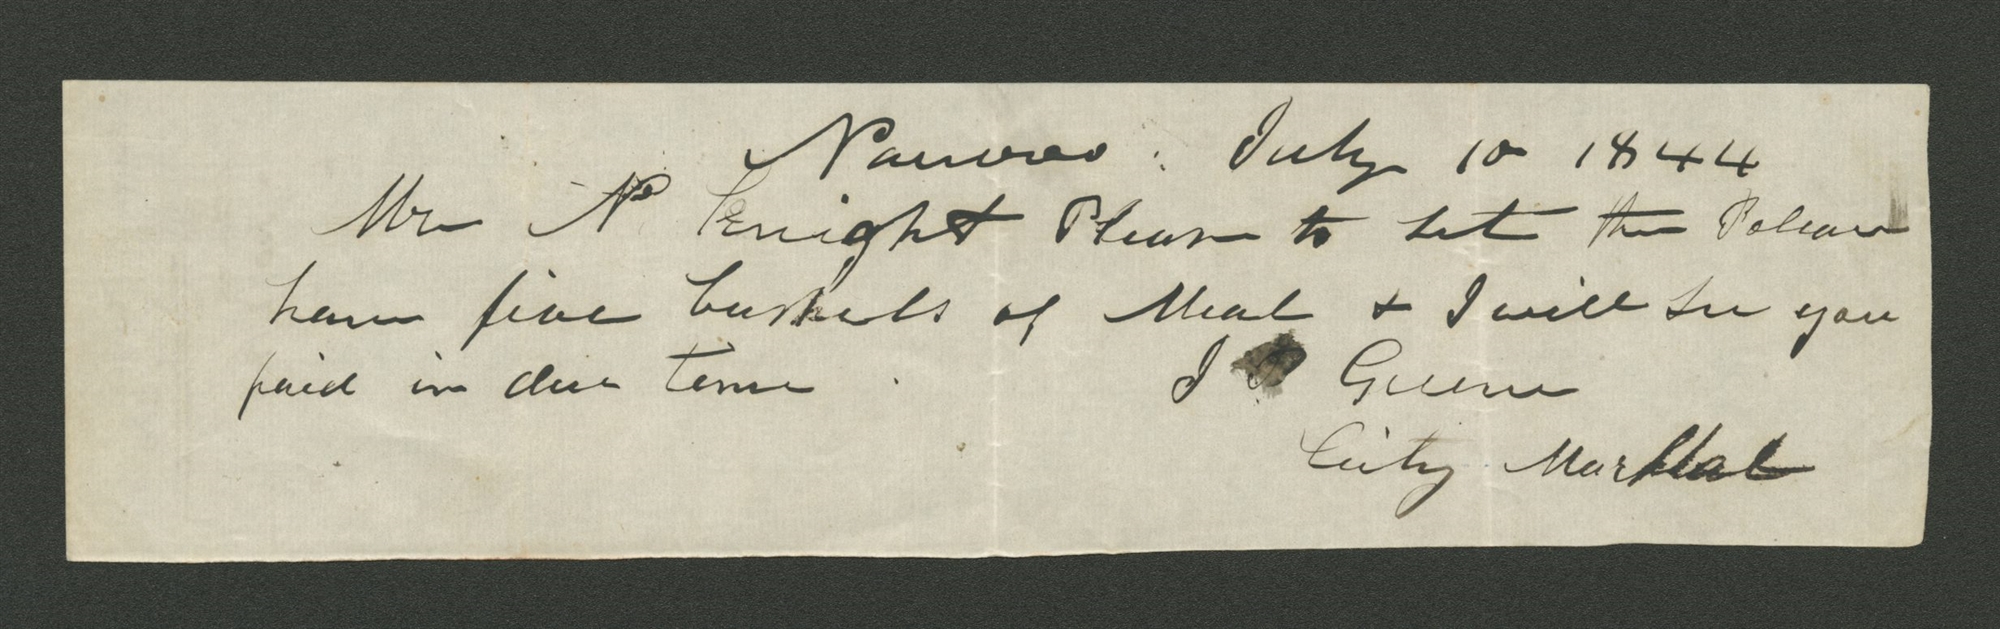 Nauvoo July 10 1844
Mr N Knight Please to let the Poleace
have five bushels of Meal & I will see you
paid in due time
J P Greene
City Marshal